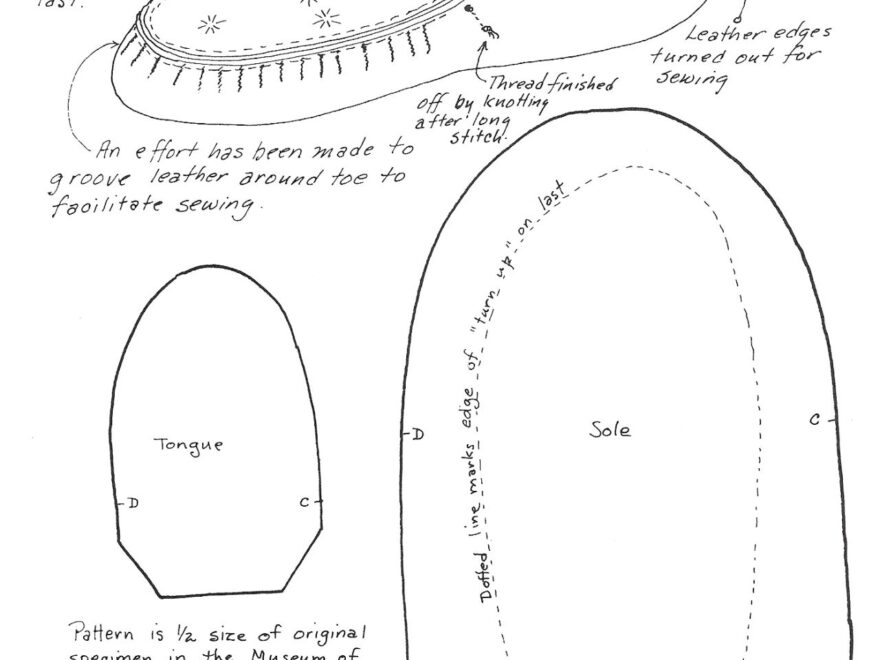 last.
Leather edges
turned out for
sewing
Thread finished
off by knotting
after long
stitch.
An effort has been made to
groove leather around toe to
facilitate sewing.
Dotted line marks edge of "turn up" on last
Tongue
D
C
Sole
D
C
Pattern is ½ size of original
specimen in the Museum of